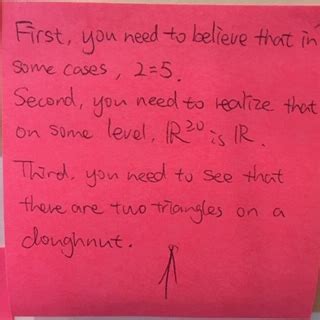 First, you need to believe that in
some cases, 2=5.
Second, you need to realize that
on some level, ℝ²⁰ is ℝ.
Third, you need to see that
there are two triangles on a
doughnut.